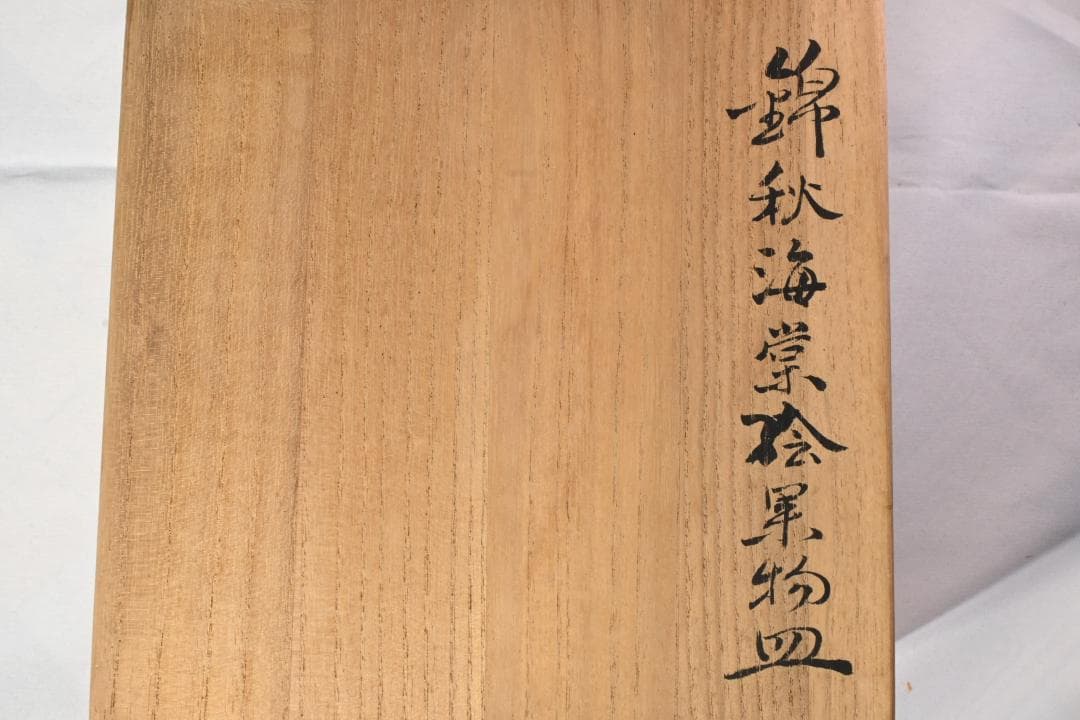 錦秋海棠絵果物皿